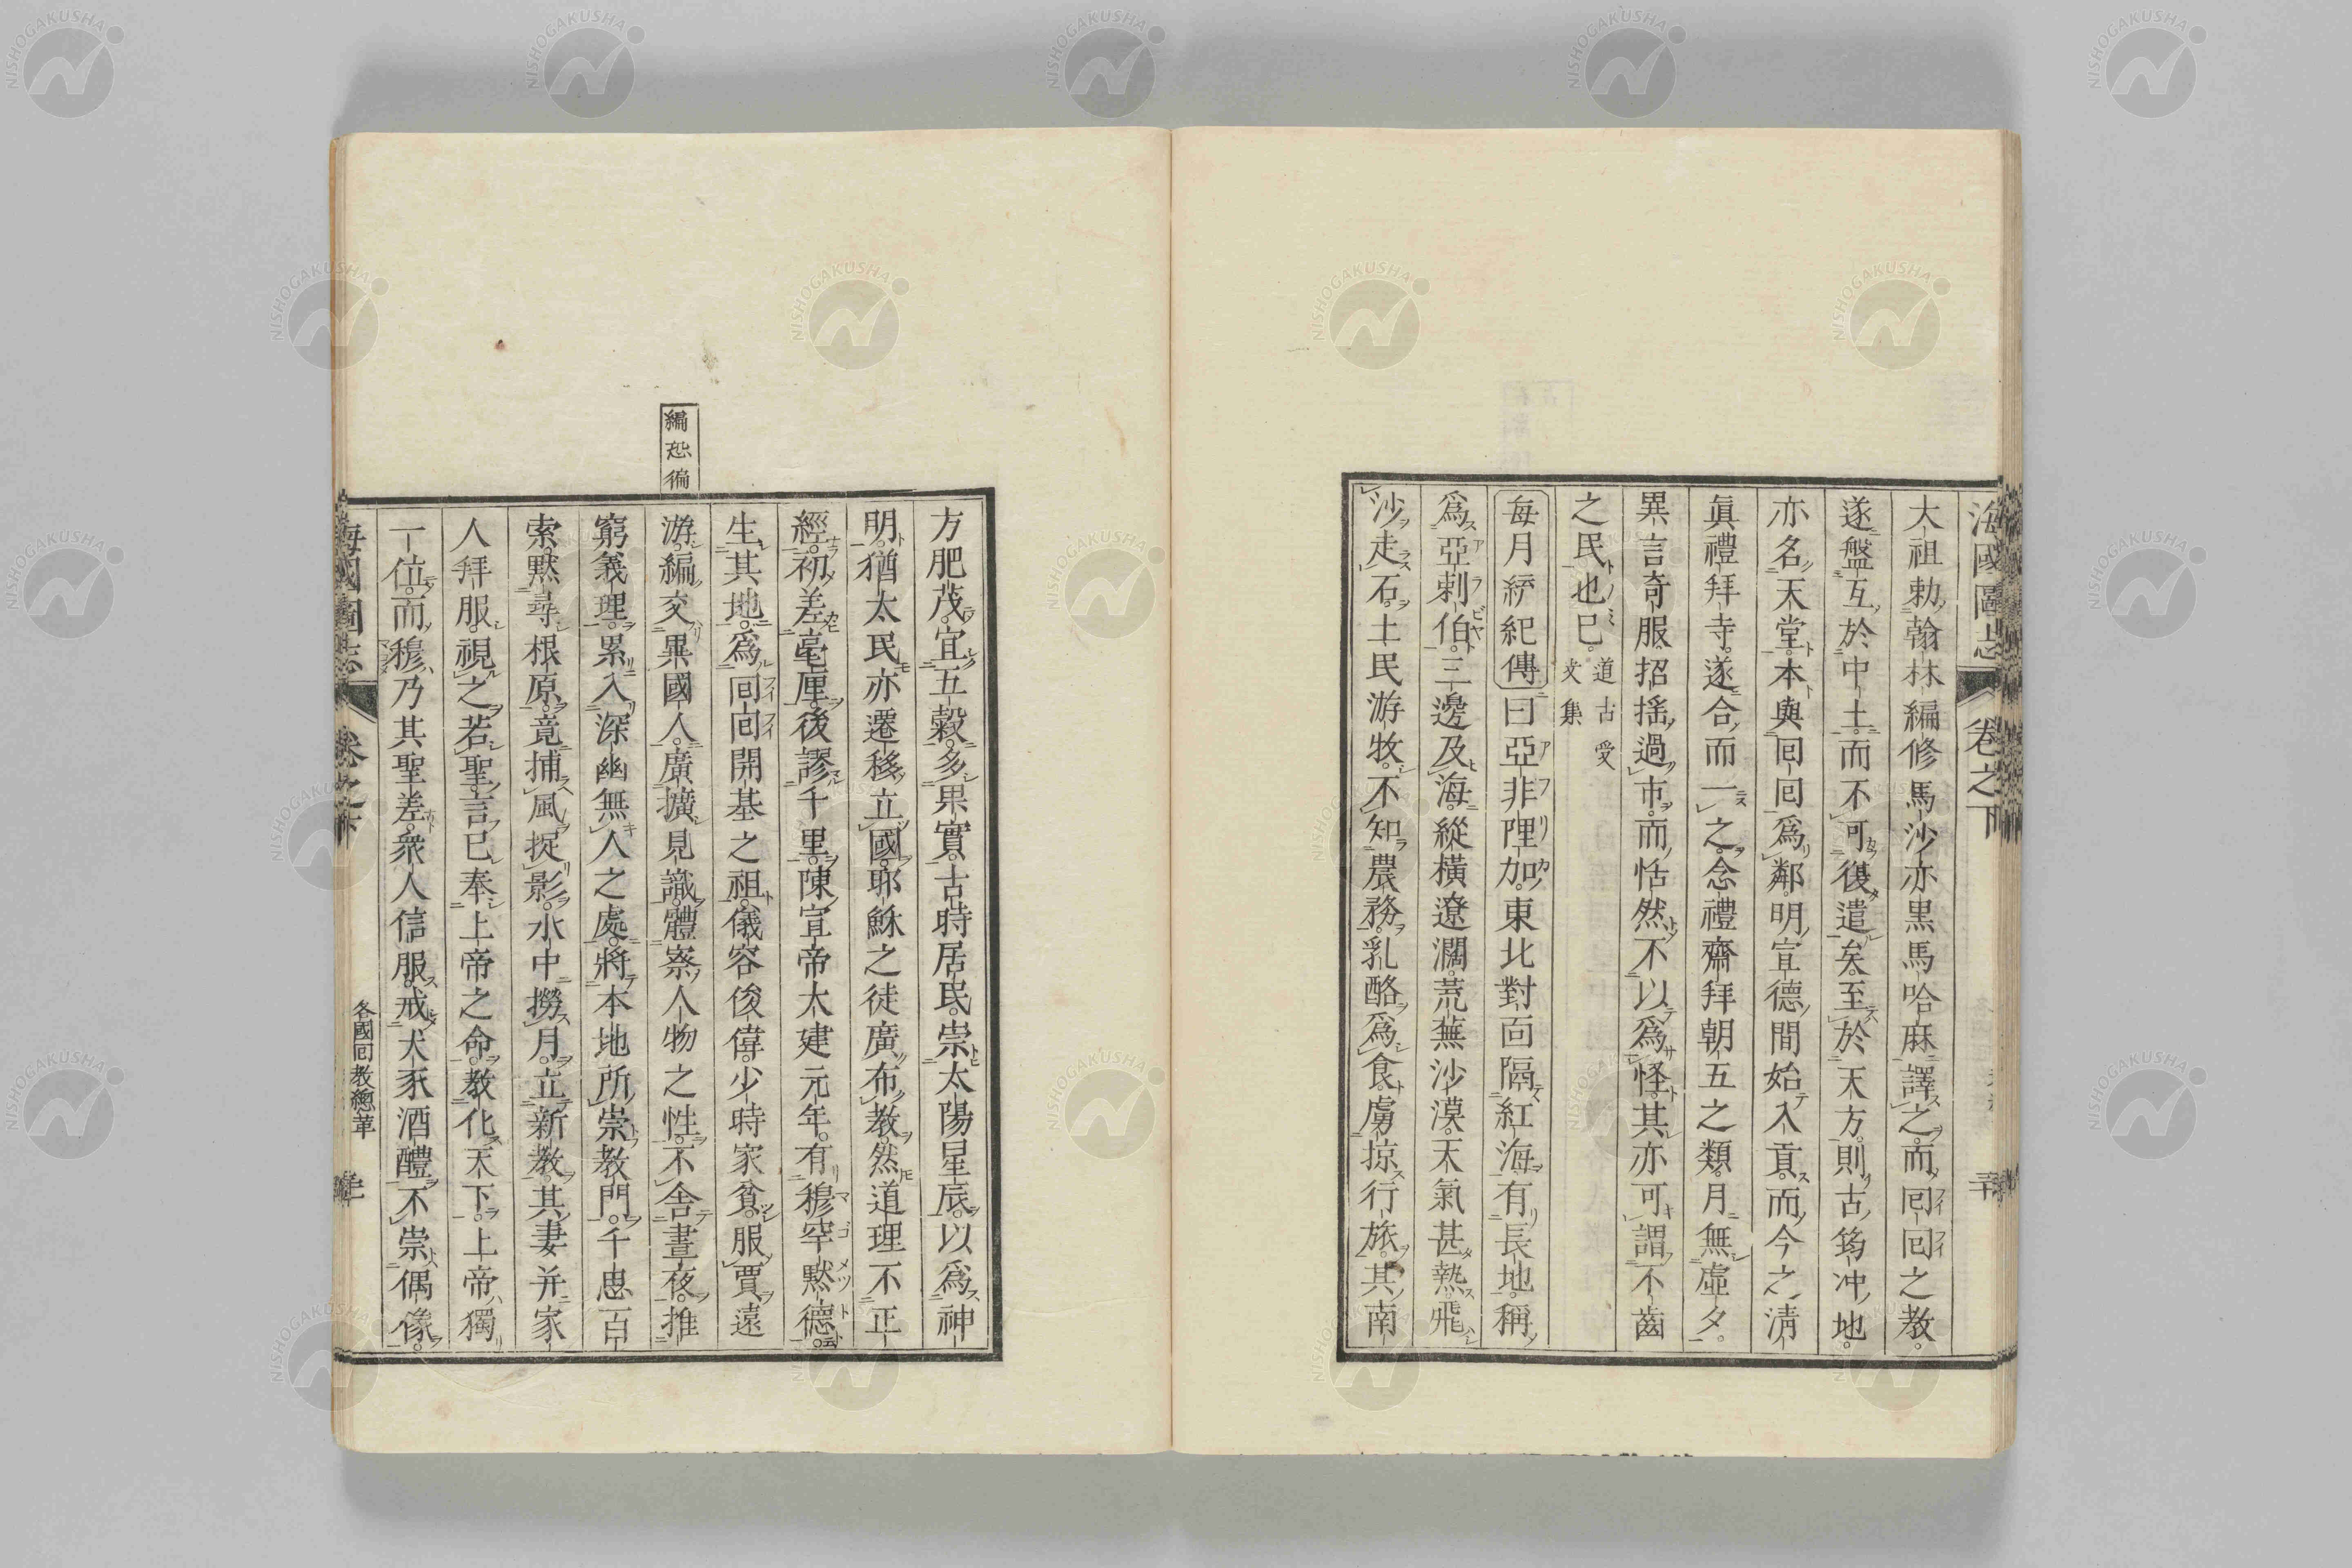 海國圖志 卷之下
大祖勅翰林編修馬沙亦黒馬哈麻譯之而囘囘之教。
遂盤互於中土。而不可復遣矣。至於天方。則古筠冲地。
亦名天堂。本與囘囘爲鄰。明宣德間始入貢。而今之清
眞禮拜寺。遂合而一之。念禮齋拜朝五之類。月無虛夕。
異言奇服。招搖過市。而恬然不以爲怪。其亦可謂不齒
之民也已。道古堂文集
每月統紀傳曰亞非哩加。東北對面隔紅海有長地。稱
爲亞剌伯。三邊及海。縱橫遼濶。荒蕪沙漠。天氣甚熱。飛
沙走石。土民游牧。不知農務。乳酪爲食。虜掠行旅。其南
編恐徧
方肥茂。宜五穀。多果實。古時居民。崇太陽星辰。以爲神
明。猶太民亦遷移立國。耶穌之徒廣布教。然道理不正
經。初差毫厘。後謬千里。陳宣帝太建元年。有穆罕默德。
生其地。爲囘囘開基之祖。儀容俊偉。少時家貧。服賈遠
游。編交異國人。廣擴見識。體察人物之性。不舍晝夜。推
窮義理。累入深幽無人之處。將本地所崇教門。千思百
索。默尋根原。竟捕風捉影。水中撈月。立新教。其妻并家
人拜服。視之若聖。言已奉上帝之命。教化天下。上帝獨
一位。而穆乃其聖差。衆人信服。戒犬豕酒醴。不崇偶像。
海國圖志 卷之下 各國囘教總革